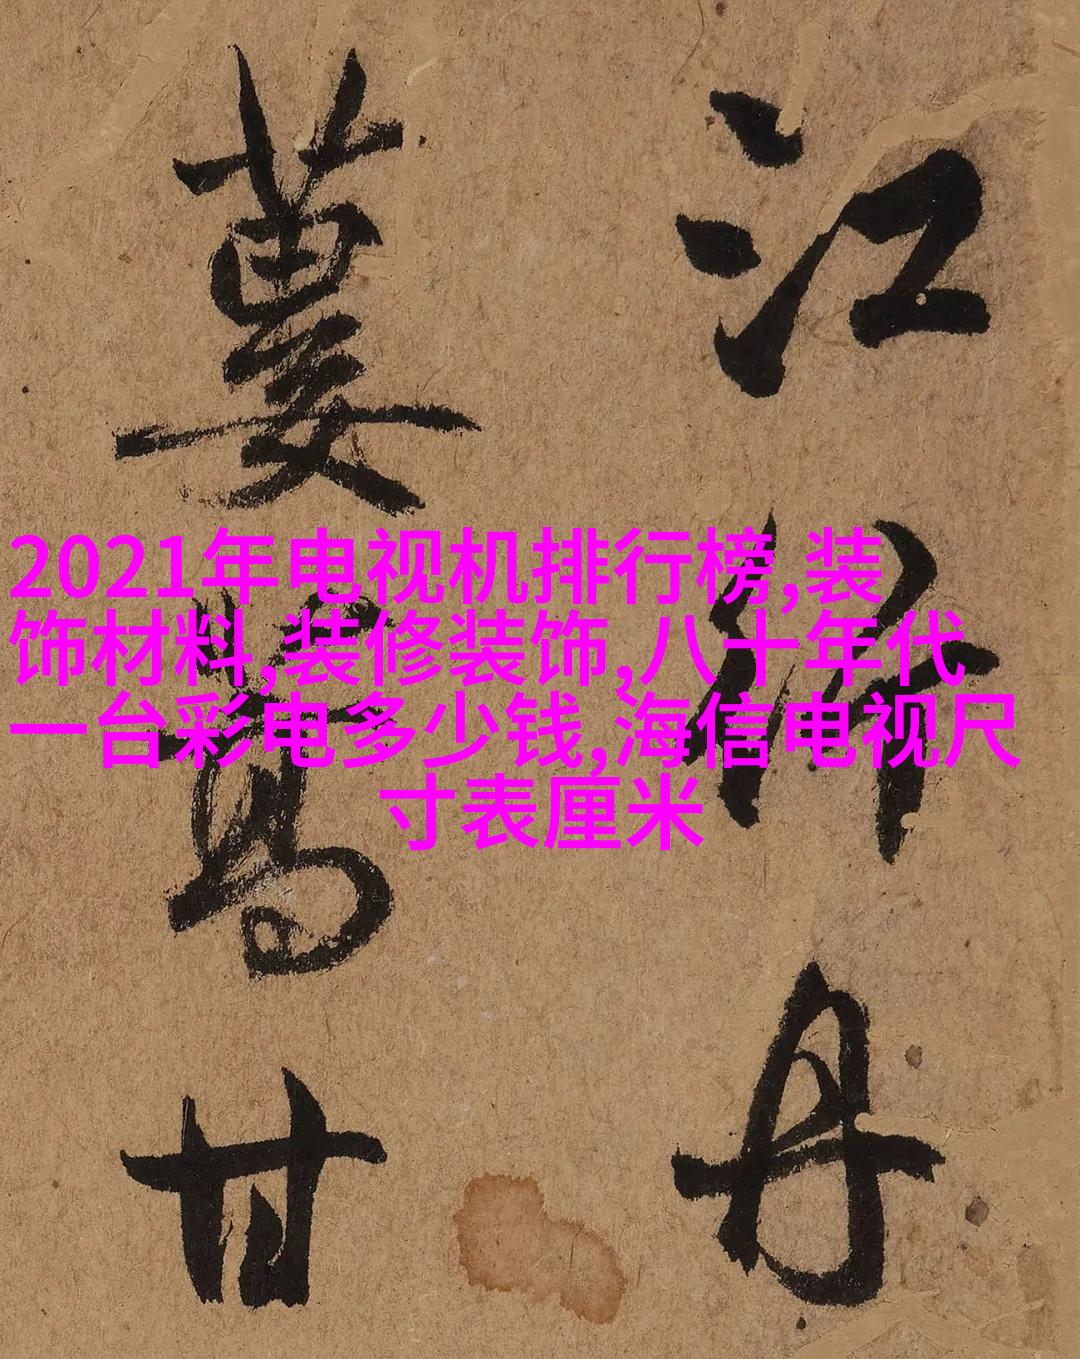 2021年电视机排行榜,装
饰材料,装修装饰,八十年代
一台彩电多少钱,海信电视尺
寸表厘米
江丹
甘